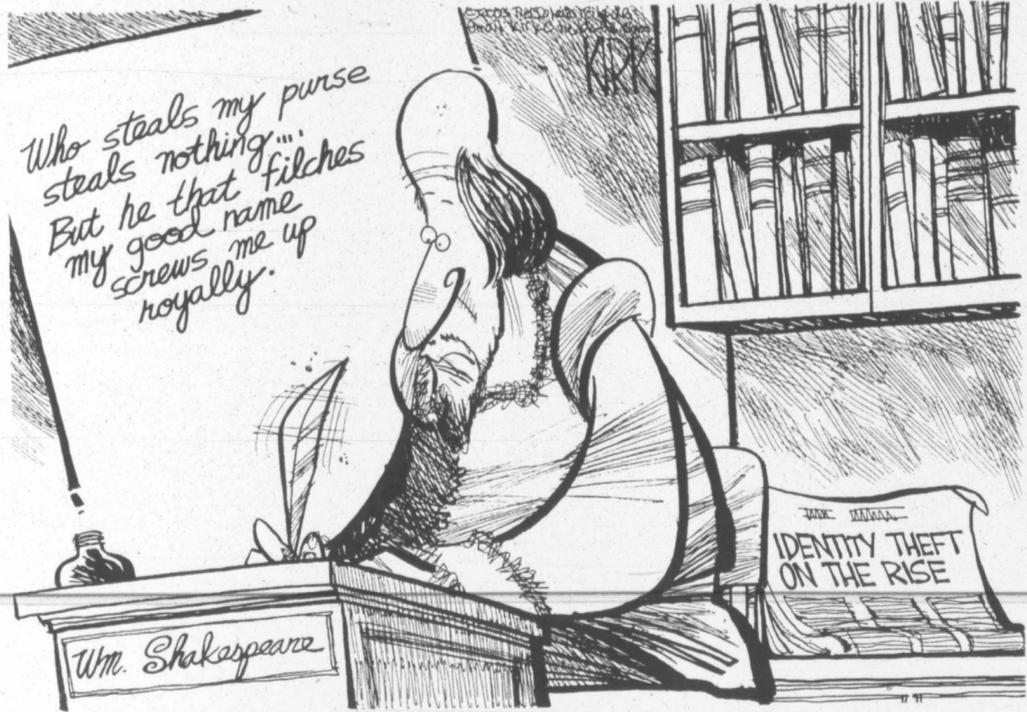 ©2005
KIRK
Who steals my purse
steals nothing....
But he that filches
my good name
screws me up
royally.
IDENTITY THEFT
ON THE RISE
Wm. Shakespeare